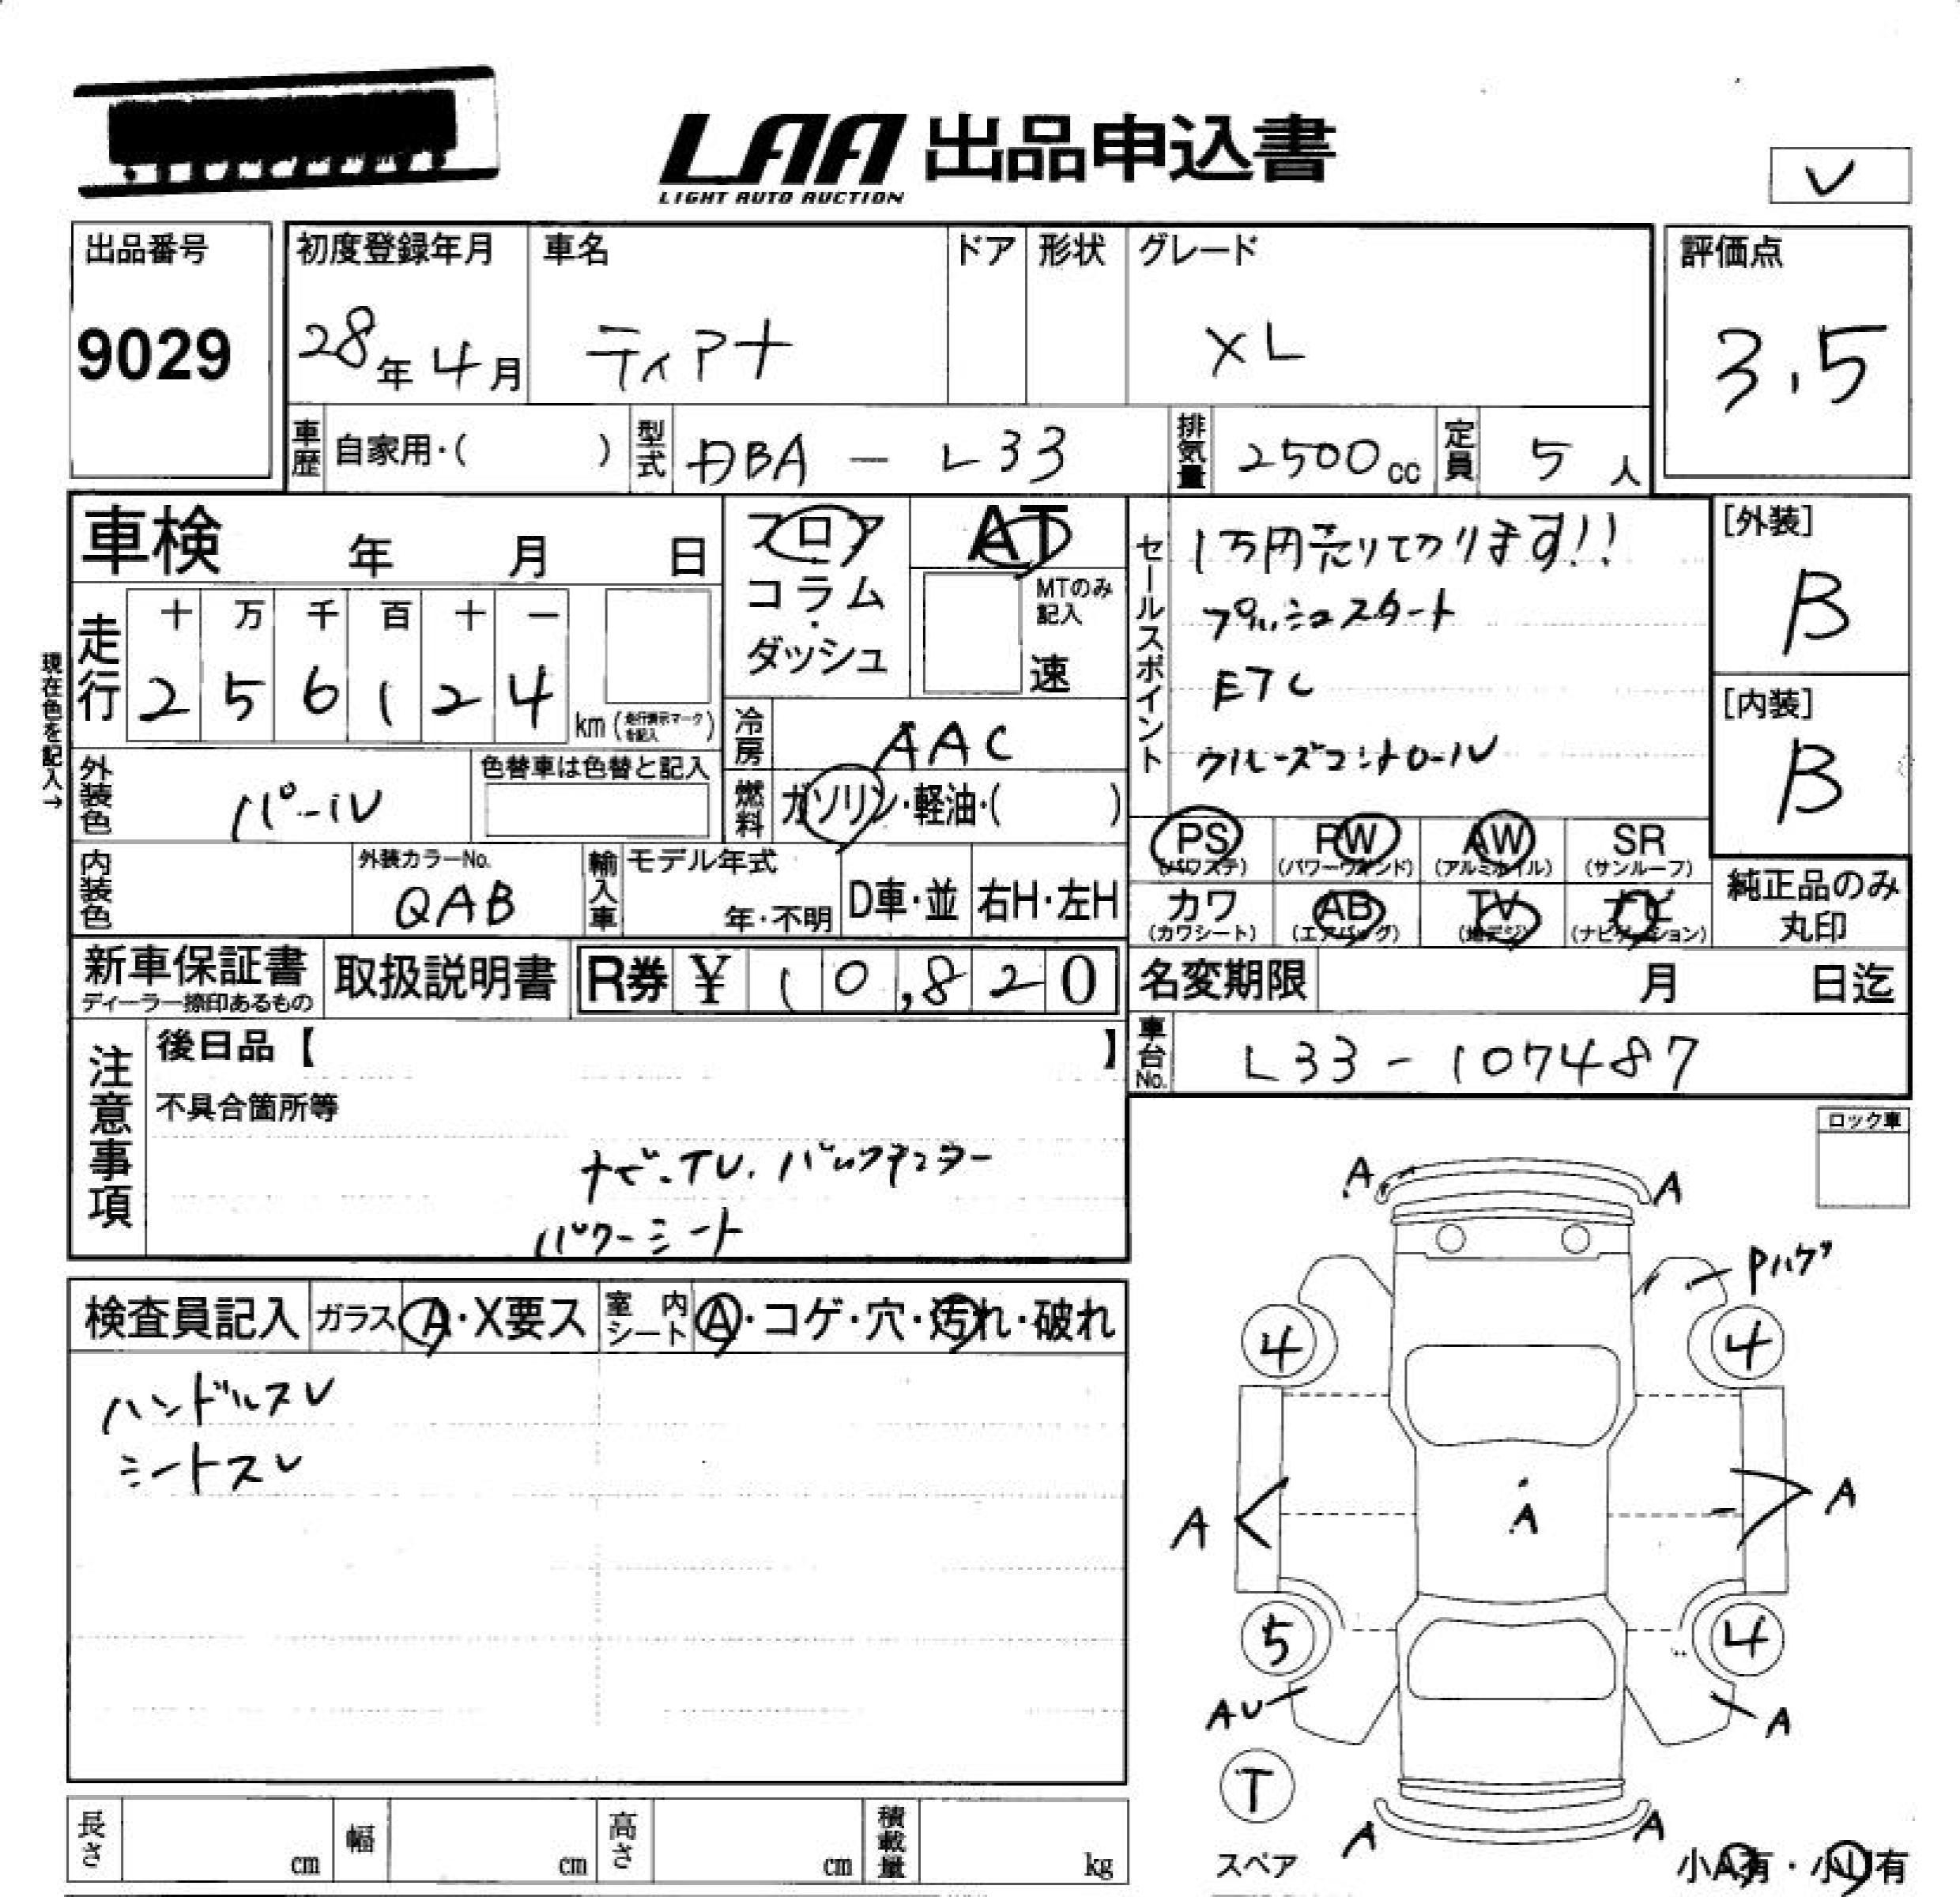 LAA 出品申込書
LIGHT AUTO AUCTION
レ
出品番号
9029
初度登録年月
28年4月
車名
ティアナ
ドア
形状
グレード
XL
評価点
3.5
車歴 自家用・( )
型式 DBA - L33
排気量 2500cc
定員 5人
車検 年 月 日
フロア
コラム
・
ダッシュ
AT
MTのみ
記入
速
セールスポイント
1万円売り切ります!!
プッシュスタート
ETC
クルーズコントロール
[外装]
B
[内装]
B
現在色を記入→
走行
十 万 千 百 十 一
2 5 6 1 2 4
km (走行表示マークを記入)
冷房 AAC
燃料 ガソリン・軽油・( )
外装色 パール
色替車は色替と記入
PS
(パワステ)
PW
(パワーウインド)
AW
(アルミホイル)
SR
(サンルーフ)
カワ
(カワシート)
AB
(エアバッグ)
TV
(地デジ)
ナビ
(ナビゲーション)
純正品のみ
丸印
内装色
外装カラーNo.
QAB
輸入車
モデル年式
年・不明
D車・並
右H・左H
新車保証書
ディーラー捺印あるもの
取扱説明書
R券 ¥ 10,820
名変期限 月 日迄
車台No. L33-107487
注意事項
後日品【 】
不具合箇所等
ナビ.TV.バックモニター
パワーシート
ロック車
検査員記入
ガラス A・X要ス
室内シート A・コゲ・穴・汚れ・破れ
ハンドルスレ
シートスレ
A A
Pハゲ
4 4
A A A
5 4
AU A
T
スペア
A A
小A有・小U有
長さ cm
幅 cm
高さ cm
積載量 kg